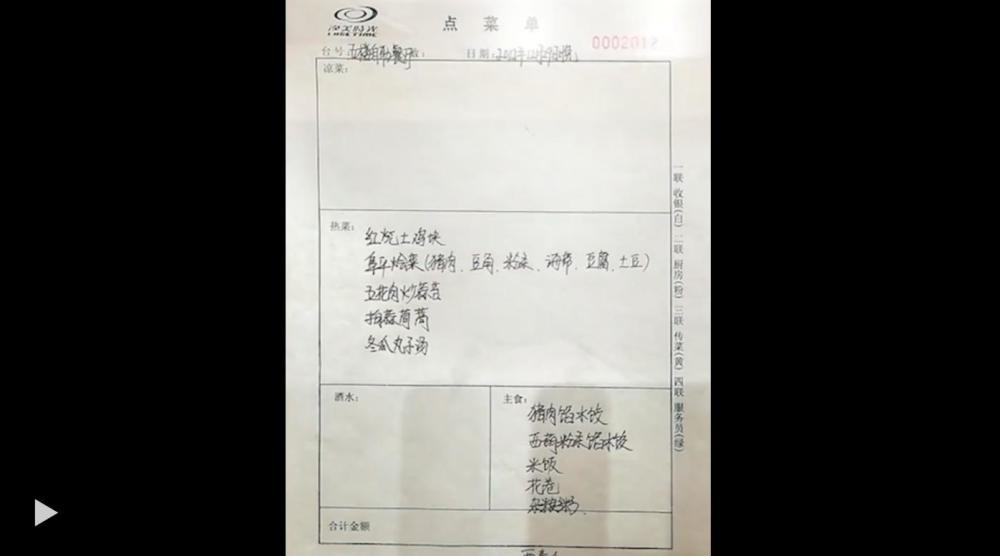 点菜单
0002012
台号:五楼自助餐厅 数: 日期:2012年12月29日晚
凉菜:
热菜:
红烧土鸡块
阜平烩菜(猪肉、豆角、粉条、海带、豆腐、土豆)
五花肉炒蒜苔
拍蒜茼蒿
冬瓜丸子汤
酒水:
主食:
猪肉馅水饺
西葫粉条馅水饺
米饭
花卷
杂粮粥
合计金额
一联 收银(白) 二联 厨房(粉) 三联 传菜(黄) 四联 服务员(绿)